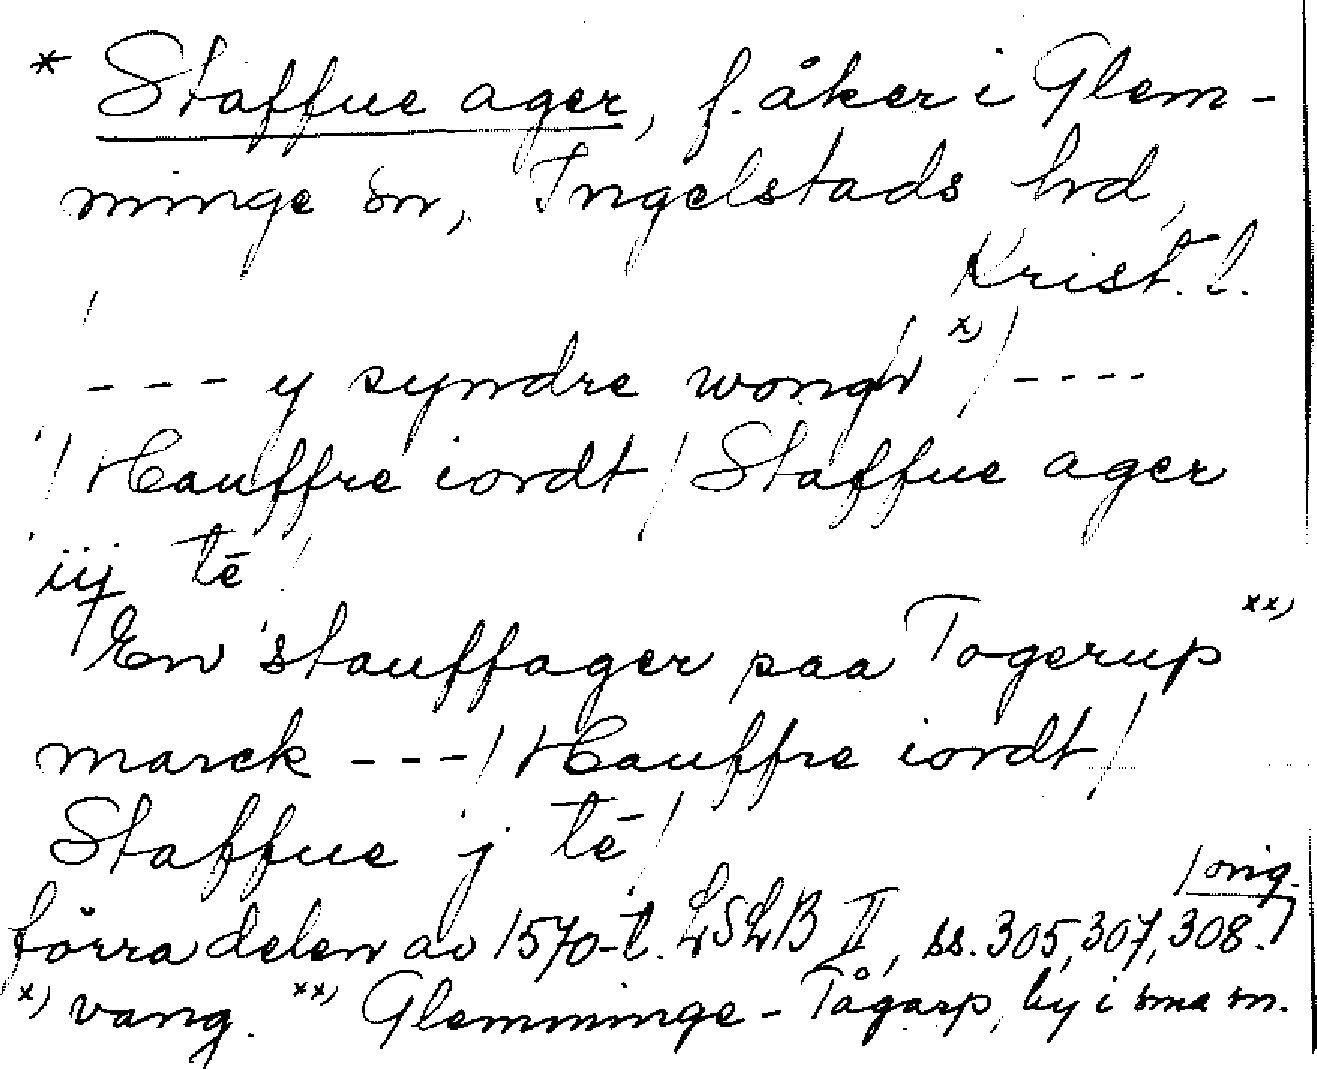 * Staffue ager, f. åker i Glem-
minge sn, Ingelstads hd,
Krist. l.
--- y syndre wongh x) / ----
/ Hauffre iordt / Staffue ager
iij tē /
En stauffager paa Togerup xx)
marck --- / Hauffre iordt /
Staffue j tē /
/ orig.
förra delen av 1570-t. LSLB II, ss. 305, 307, 308.
x) vang. xx) Glemminge-Tågarp, by i sma sn.